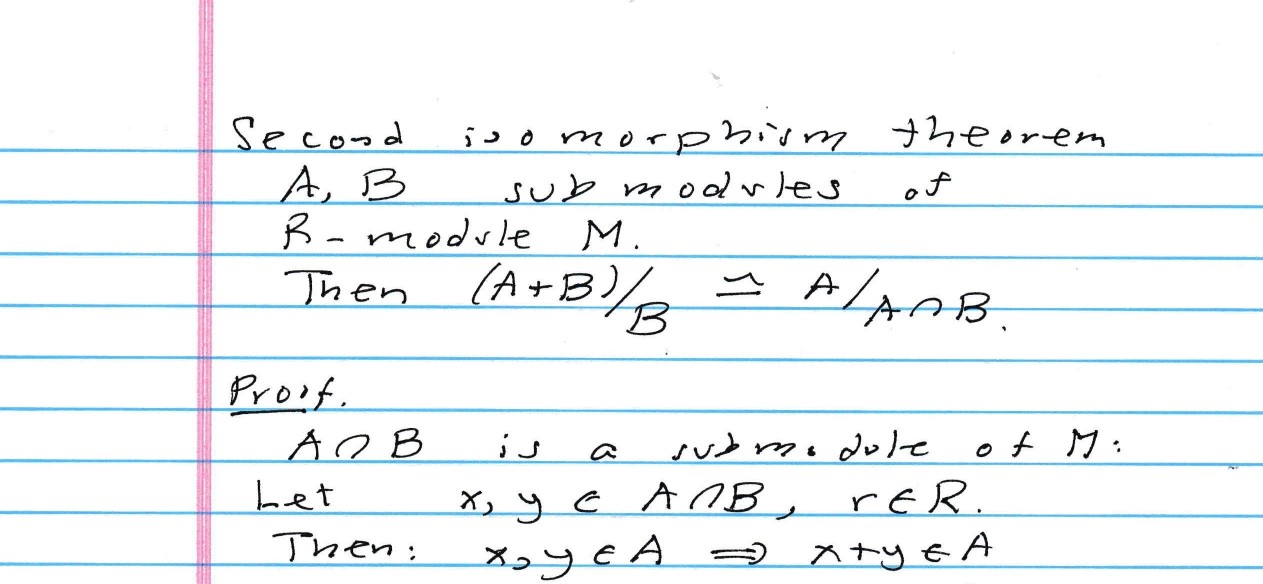 Second isomorphism theorem
A, B submodules of
R-module M.
Then (A+B)/B ≃ A/A∩B.
Proof.
A∩B is a submodule of M:
Let x, y ∈ A∩B, r∈R.
Then: x,y∈A ⇒ x+y∈A